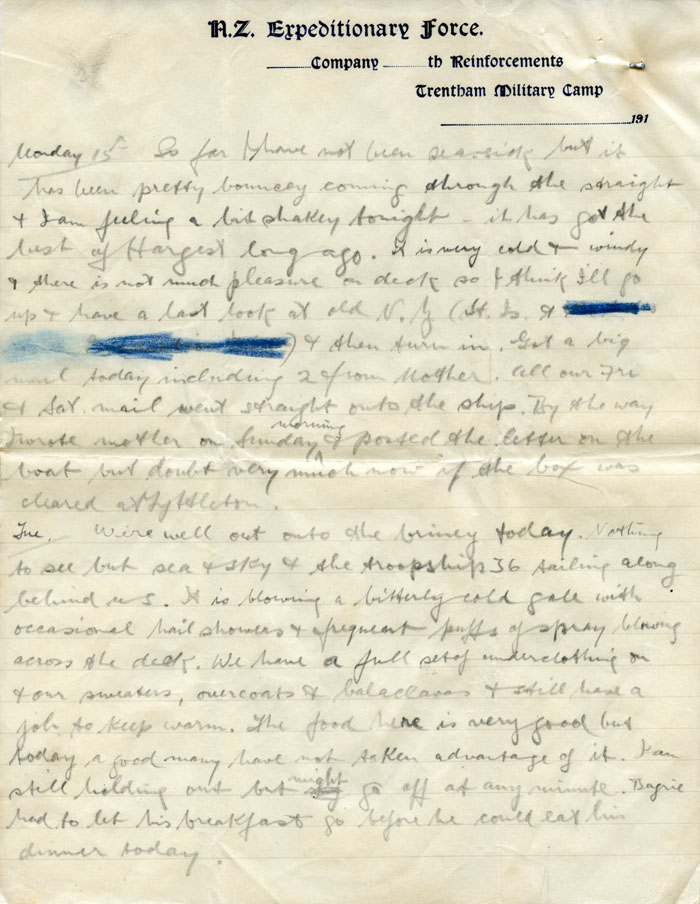 N.Z. Expeditionary Force.
Company th Reinforcements
Trentham Military Camp
191
Monday 15th So far I have not been seasick but it
has been pretty bouncey coming through the straight
& I am feeling a bit shakey tonight – it has got the
best of Hargest long ago. It is very cold & windy
& there is not much pleasure on deck so I think I'll go
up & have a last look at old N.Z (St. Is. &
) & then turn in. Got a big
mail today including 2 from Mother. All our Fri
& Sat. mail went straight onto the ship. By the way
I wrote mother on Sunday morning & posted the letter on the
boat but doubt very much now if the box was
cleared at Lyttleton.
Tue. We're well out onto the briney today. Nothing
to see but sea & sky & the troopship 36 tailing along
behind us. It is blowing a bitterly cold gale with
occasional hail showers & frequent puffs of spray blowing
across the deck. We have a full set of underclothing on
& our sweaters, overcoats & balaclavas & still have a
job to keep warm. The food here is very good but
today a good many have not taken advantage of it. I am
still holding out but might go off at any minute.
had to let his breakfast go before he could eat his
dinner today.